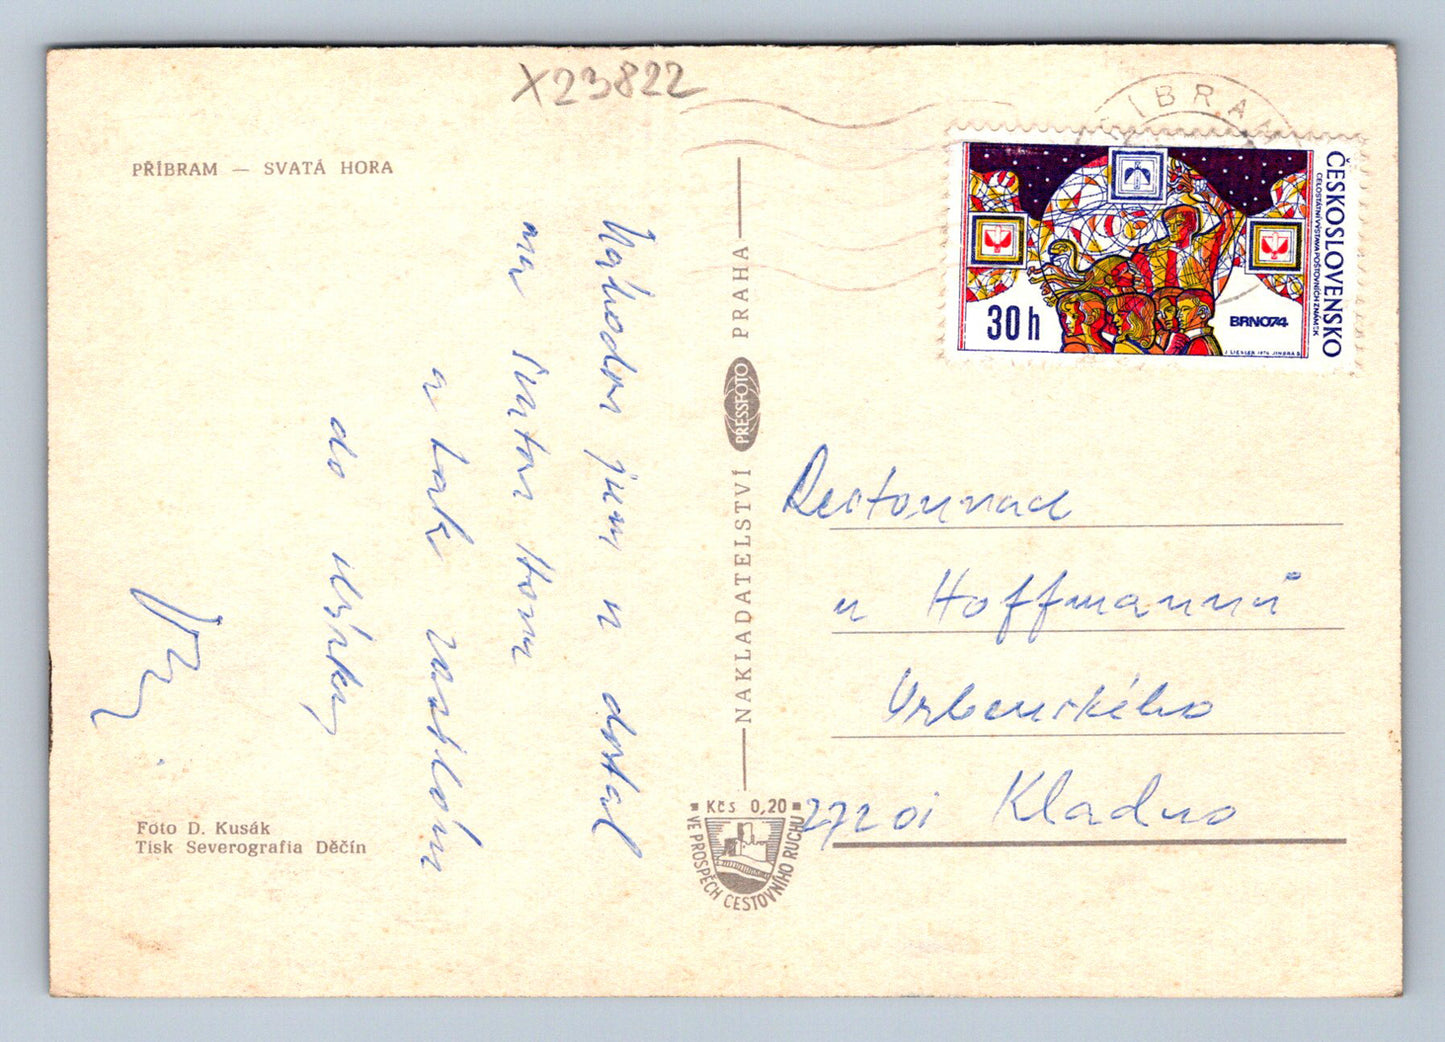 X23822
PŘÍBRAM — SVATÁ HORA
Náhodou jsem u dostal
na Svatou Horu
a tak zasílám
do sbírky
Foto D. Kusák
Tisk Severografia Děčín
NAKLADATELSTVÍ PRESSFOTO PRAHA
Kčs 0,20
VE PROSPĚCH CESTOVNÍHO RUCHU
ÍBRA
ČESKOSLOVENSKO
CELOSTÁTNÍ VÝSTAVA POŠTOVNÍCH ZNÁMEK
30h
BRNO74
J. LIESLER 1974 JINDRA S.
Restaurace
u Hoffmannů
Vrbenského
27201 Kladno